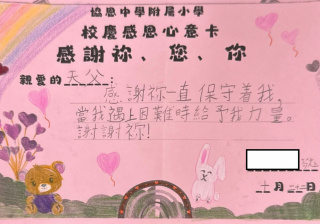 協恩中學附屬小學
校慶感恩心意卡
感謝祢、您、你
親愛的天父:
感謝祢一直保守着我,
當我遇上困難時給予我力量。
謝謝祢!
十月二十二日